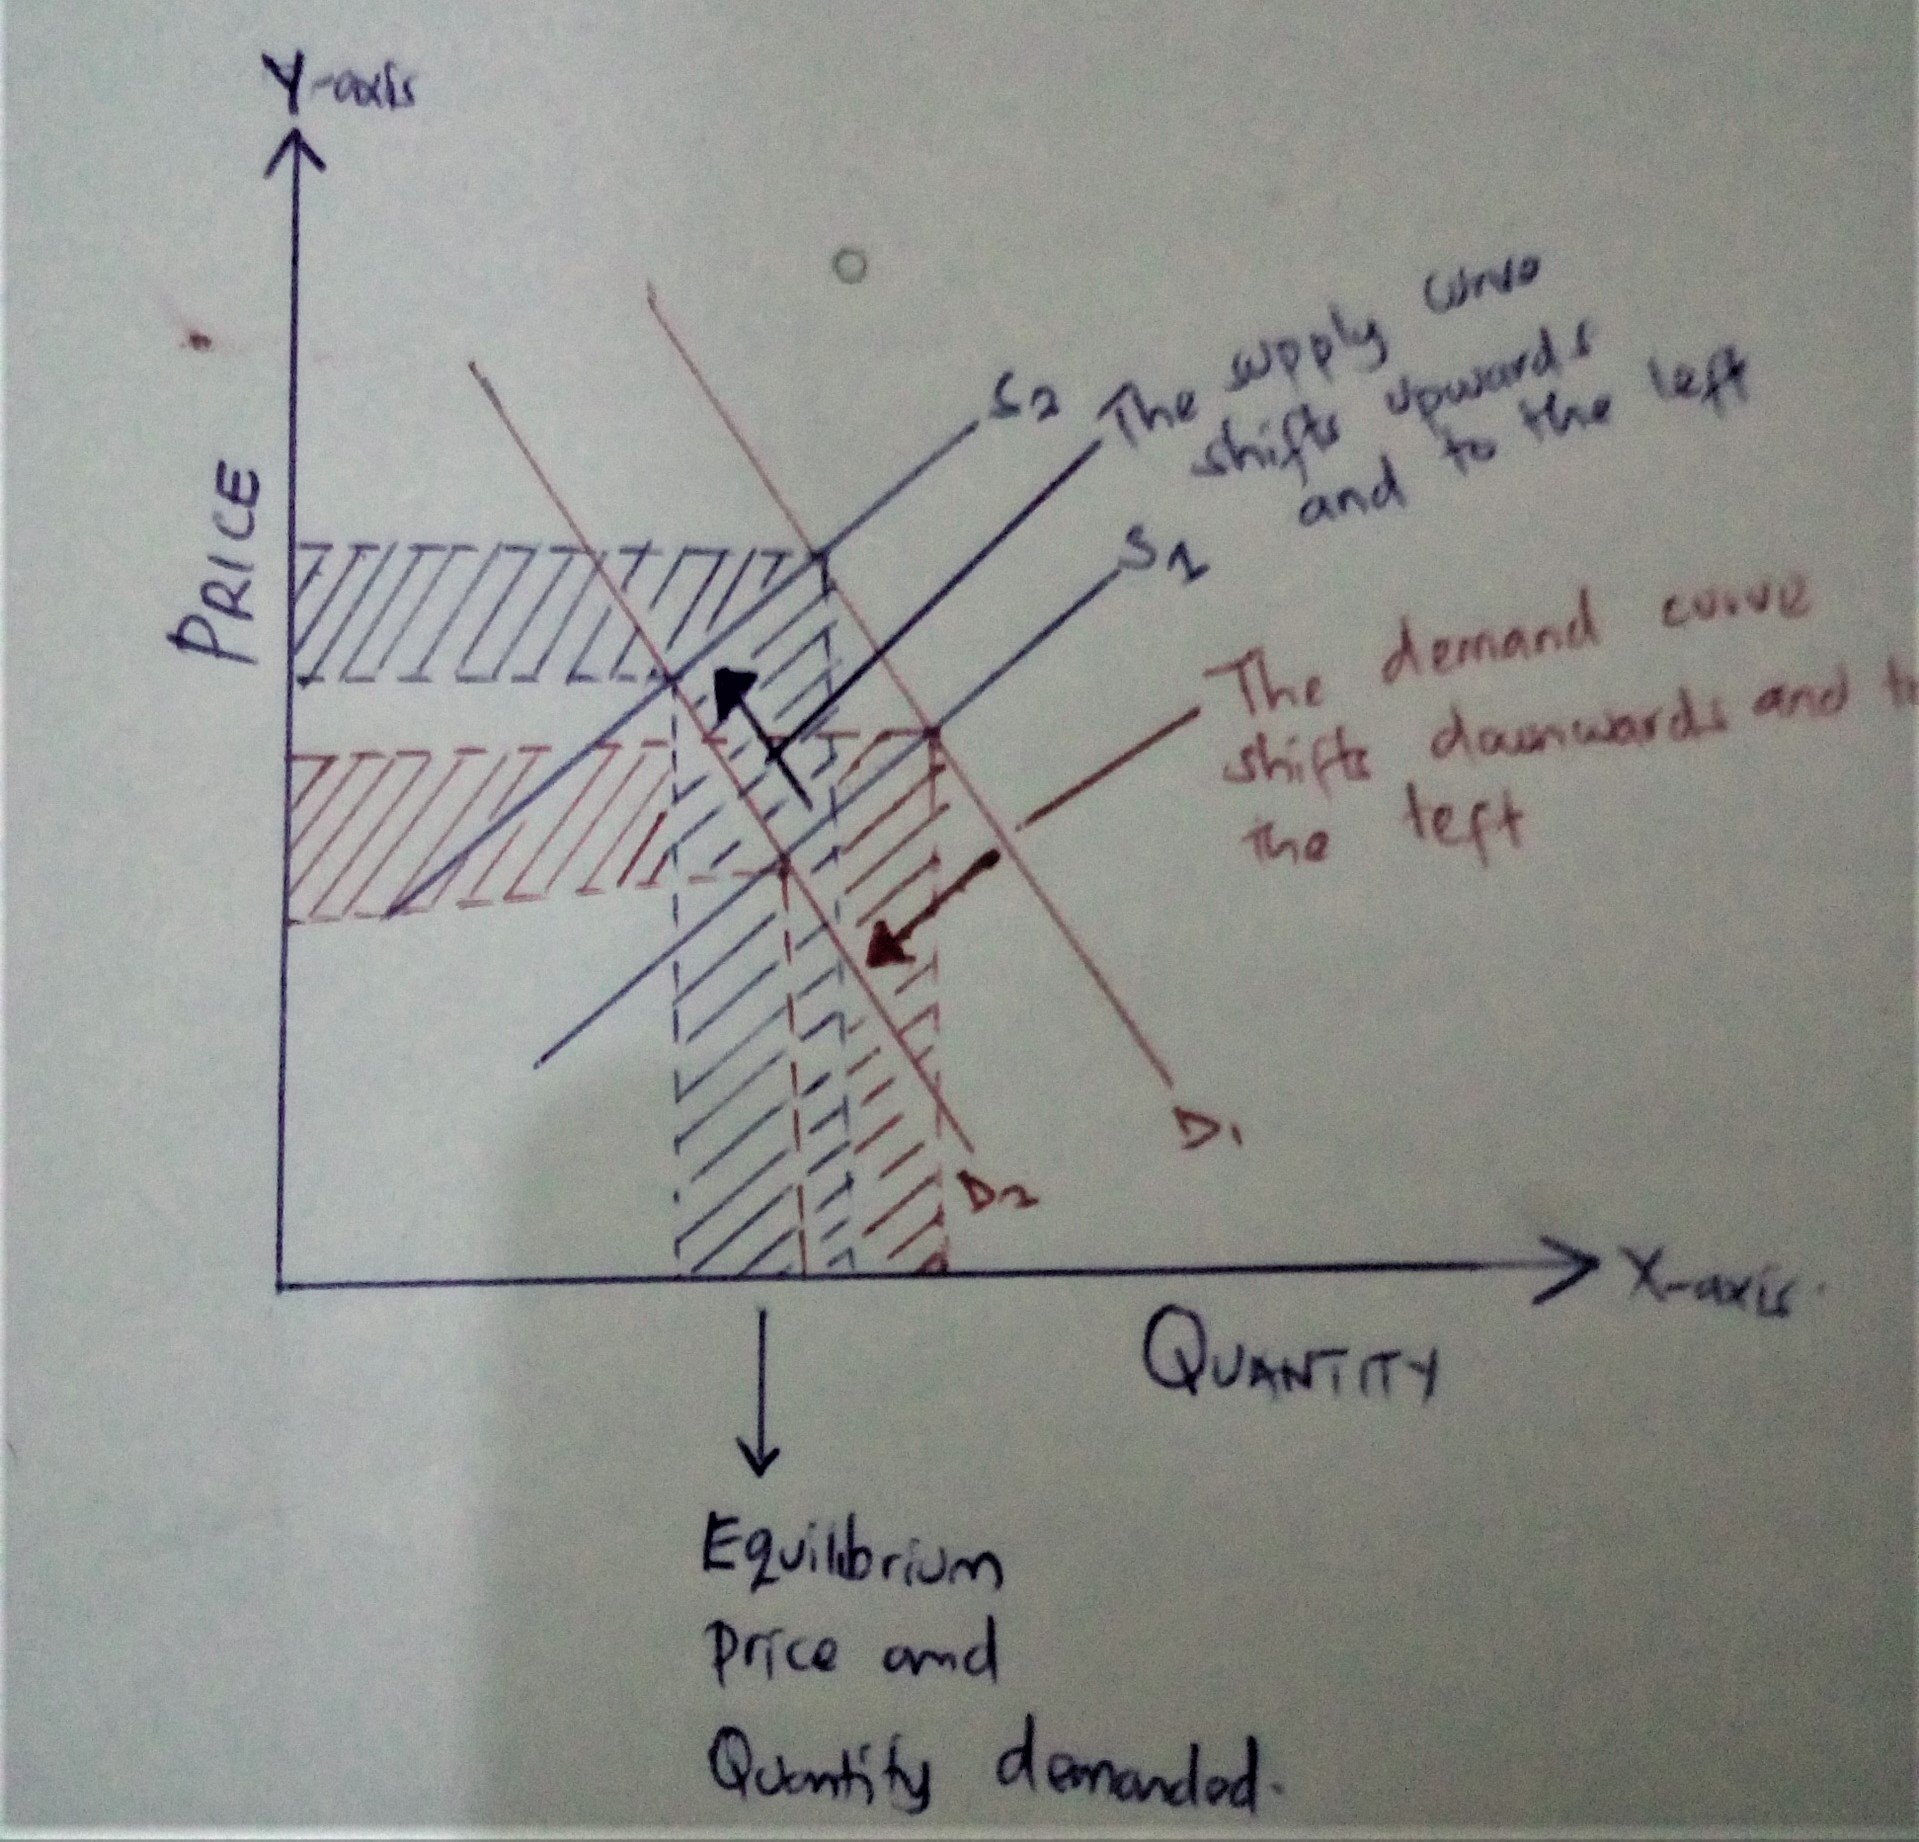 Y-axis
PRICE
S2
The supply curve
shifts upwards
and to the left
S1
The demand curve
shifts downwards and to
the left
D1
D2
X-axis
QUANTITY
Equilibrium
Price and
Quantity demanded.